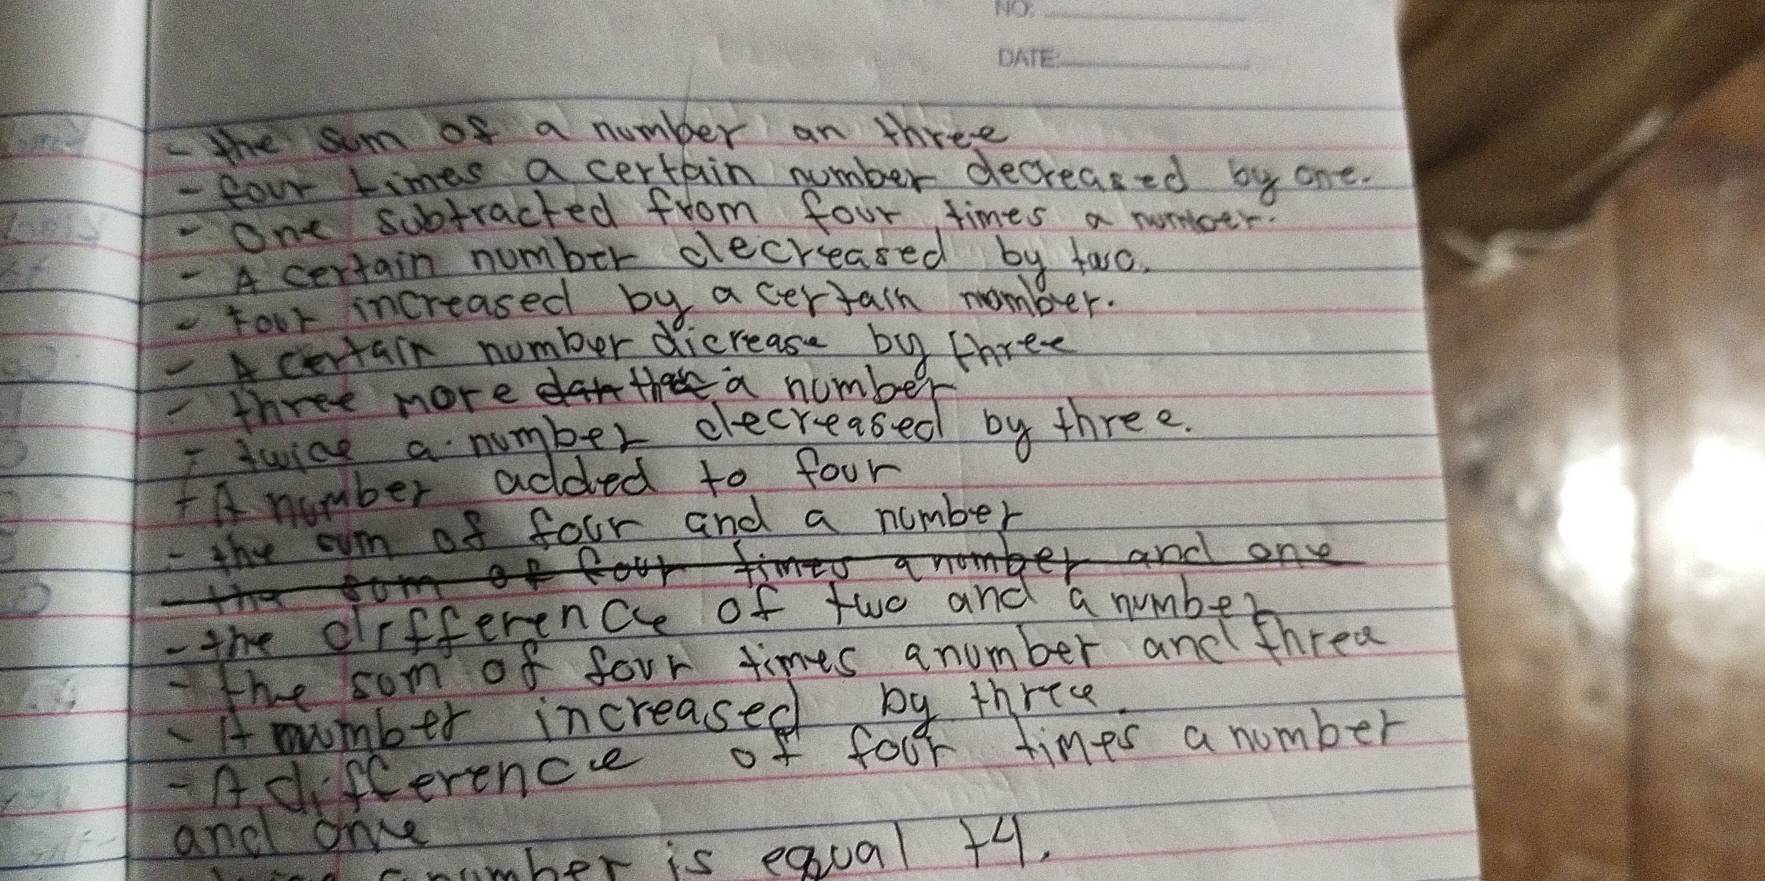 NO.
DATE:
- the sum of a number an three
- four times a certain number decreased by one.
- One subtracted from four times a number.
- A certain number decreased by two.
- four increased by a certain number.
- A certain number dicrease by three
- three more dan than a number
- twice a number decreased by three.
- A number added to four
- the sum of four and a number
- the som of four times a number and one
- the difference of two and a number
- the som of four times a number and three
- A number increased by three.
- A difference of four times a number
and one
number is equal +4.